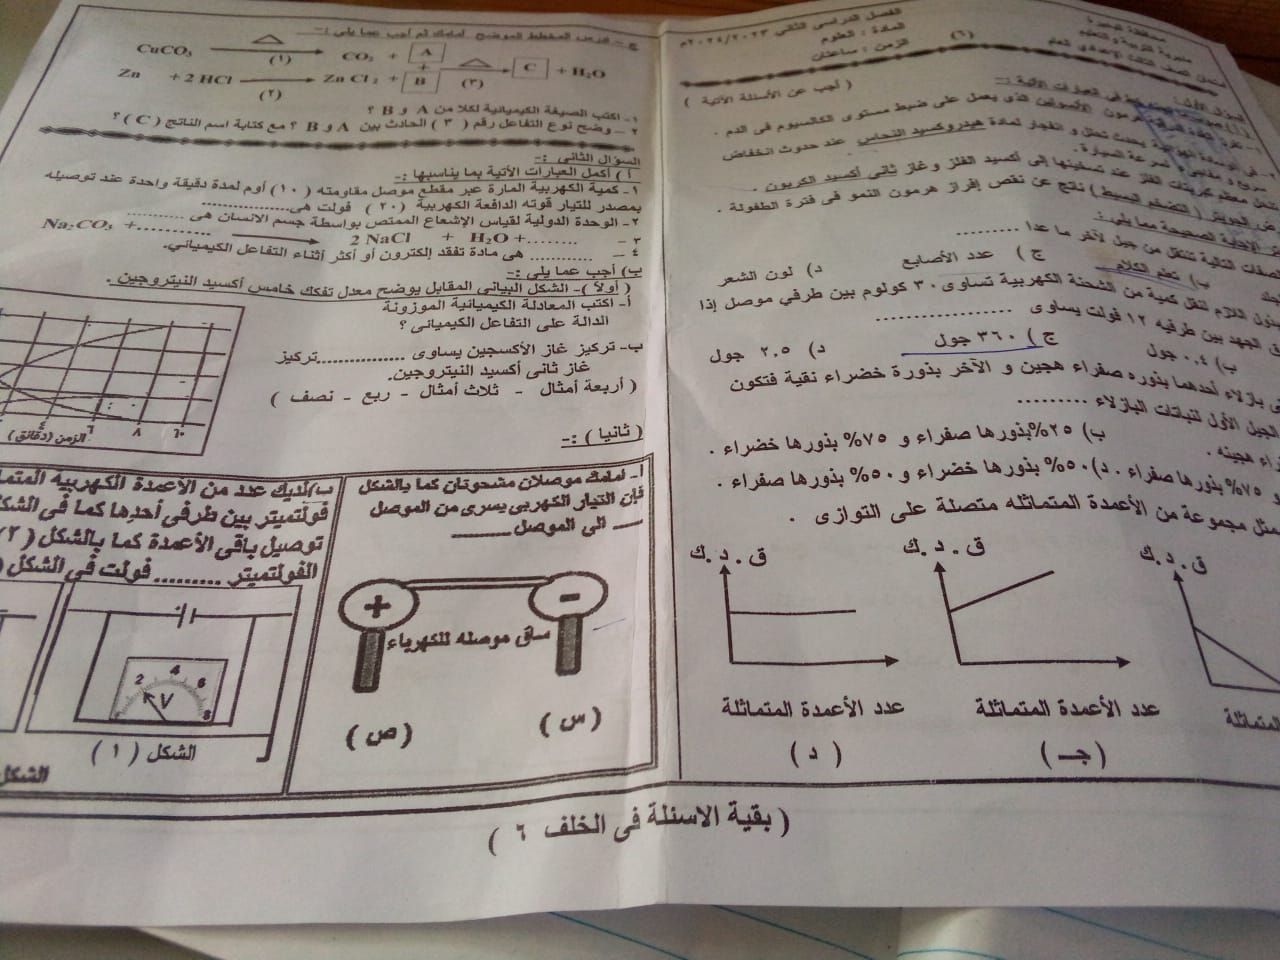 محافظة البحيرة
مديرية التربية و التعليم
الفصل الدراسى الثانى ٢٠٢٤/٢٠٢٣م
المادة : العلوم
الزمن : ساعتان
(٦)
( أجب عن الأسئلة الآتية )
هرمون الألدوسترون الذى يعمل على ضبط مستوى الكالسيوم فى الدم .
يحدث تحلل و انفجار لمادة هيدروكسيد النحاس عند حدوث انخفاض
سريع و مفاجئ لسرعة السيارة .
تنحل معظم كربونات الفلز عند تسخينها إلى أكسيد الفلز وغاز ثانى أكسيد الكربون .
مرض الجويتر ( التضخم البسيط ) ناتج عن نقص إفراز هرمون النمو فى فترة الطفولة .
الإجابة الصحيحة مما يلى :
الصفات التالية تنتقل من جيل لآخر ما عدا .........
ب) تعلم الكلام
ج ) عدد الأصابع
د) لون الشعر
اللازم لنقل كمية من الشحنة الكهربية تساوى ٣٠ كولوم بين طرفي موصل إذا
الجهد بين طرفيه ١٢ فولت يساوى ..................
ب) ٠.٤ جول
ج ) ٣٦٠ جول
د) ٢.٥ جول
بازلاء أحدهما بذوره صفراء هجين و الآخر بذورة خضراء نقية فتكون
الجيل الأول لنباتات البازلاء .........
ب) ٢٥% بذورها صفراء و ٧٥% بذورها خضراء .
و ٧٥% بذورها صفراء . د) ٥٠% بذورها خضراء و ٥٠% بذورها صفراء .
مجموعة من الأعمدة المتماثله متصلة على التوازى .
ق . د. ك
ق . د. ك
ق . د. ك
المتماثلة
عدد الأعمدة المتماثلة
عدد الأعمدة المتماثلة
( جـ )
( د )
ج – ادرس المخطط الموضح أمامك ثم أجب عما يلى :–
CuCO₃ △ (١) CO₂ + A
+ △ (٣) C + H₂O
Zn + 2 HCl (٢) Zn Cl₂ + B
١– اكتب الصيغة الكيميائية لكلا من A و B ؟
٢ – وضح نوع التفاعل رقم ( ٣ ) الحادث بين A و B ؟ مع كتابة اسم الناتج ( C ) ؟
السؤال الثانى :–
أ ) أكمل العبارات الأتية بما يناسبها :–
١– كمية الكهربية المارة عبر مقطع موصل مقاومته ( ١٠ ) أوم لمدة دقيقة واحدة عند توصيله
بمصدر للتيار قوته الدافعة الكهربية ( ٢٠ ) فولت هى................
٢– الوحدة الدولية لقياس الإشعاع الممتص بواسطة جسم الانسان هى ...........
٣ – Na₂CO₃ +............ 2 NaCl + H₂O +........
٤ – ............ هى مادة تفقد إلكترون أو أكثر أثناء التفاعل الكيميائي.
ب) أجب عما يلى :–
( أولاً )– الشكل البيانى المقابل يوضح معدل تفكك خامس أكسيد النيتروجين .
أ– اكتب المعادلة الكيميائية الموزونة
الدالة على التفاعل الكيميائى ؟
ب– تركيز غاز الأكسجين يساوى ................تركيز
غاز ثانى أكسيد النيتروجين.
( أربعة أمثال – ثلاث أمثال – ربع – نصف )
٤ ٦ ٨ ١٠
الزمن (دقائق)
( ثانيا ) :–
أ– أمامك موصلان مشحونتان كما بالشكل
فإن التيار الكهربى يسرى من الموصل
الى الموصل
+
–
ساق موصله للكهرباء
( س )
( ص )
ب) لديك عدد من الأعمدة الكهربيه
فولتميتر بين طرفى أحدها كما فى
توصيل باقى الأعمدة كما بالشكل
الفولتميتر ......... فولت فى الشكل
2 4 6 8
V
الشكل ( ١ )
الشكل
( بقية الاسئلة فى الخلف ٦ )